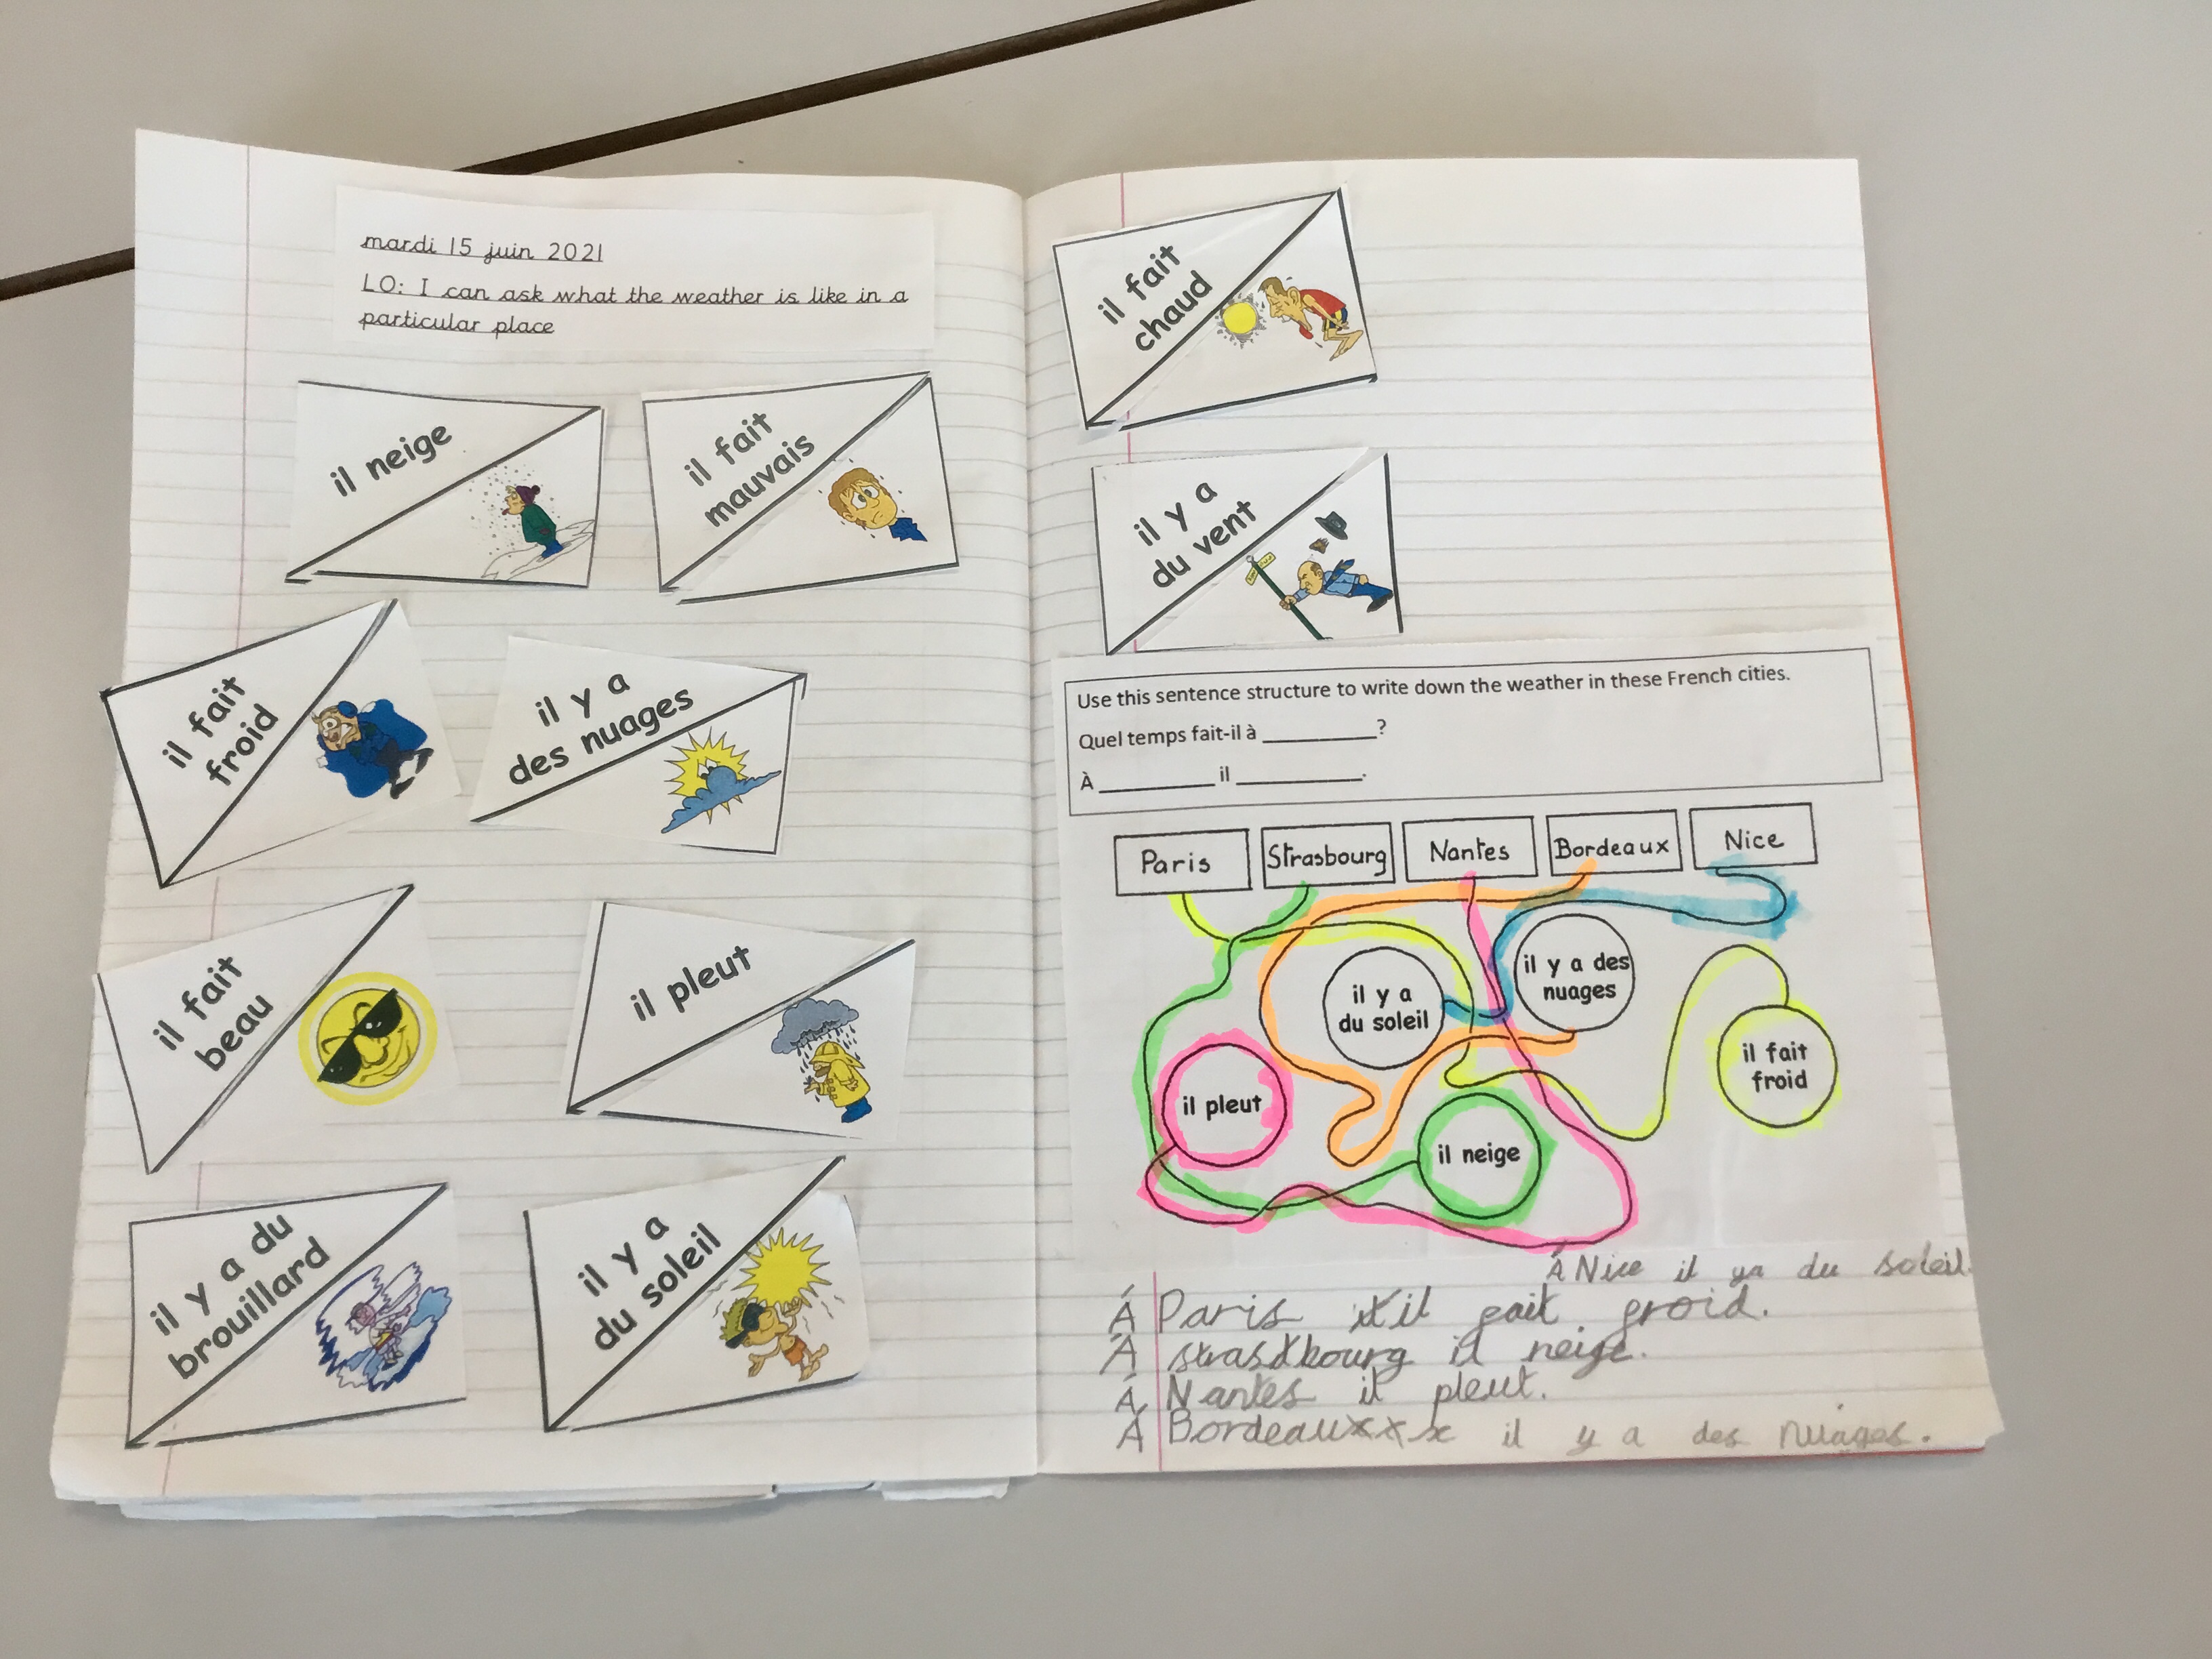 mardi 15 juin 2021
LO: I can ask what the weather is like in a
particular place
il neige
il fait
mauvais
il fait
froid
il y a
des nuages
il fait
beau
il pleut
il y a du
brouillard
il y a
du soleil
il fait
chaud
il y a
du vent
Use this sentence structure to write down the weather in these French cities.
Quel temps fait-il à __________?
À __________ il __________.
Paris Strasbourg Nantes Bordeaux Nice
il y a
du soleil
il y a des
nuages
il fait
froid
il pleut
il neige
Á Nice il ya du soleil.
Á Paris il fait froid.
Á strasbourg il neige.
Á Nantes il pleut.
Á Bordeaux x x il y a des nuages.